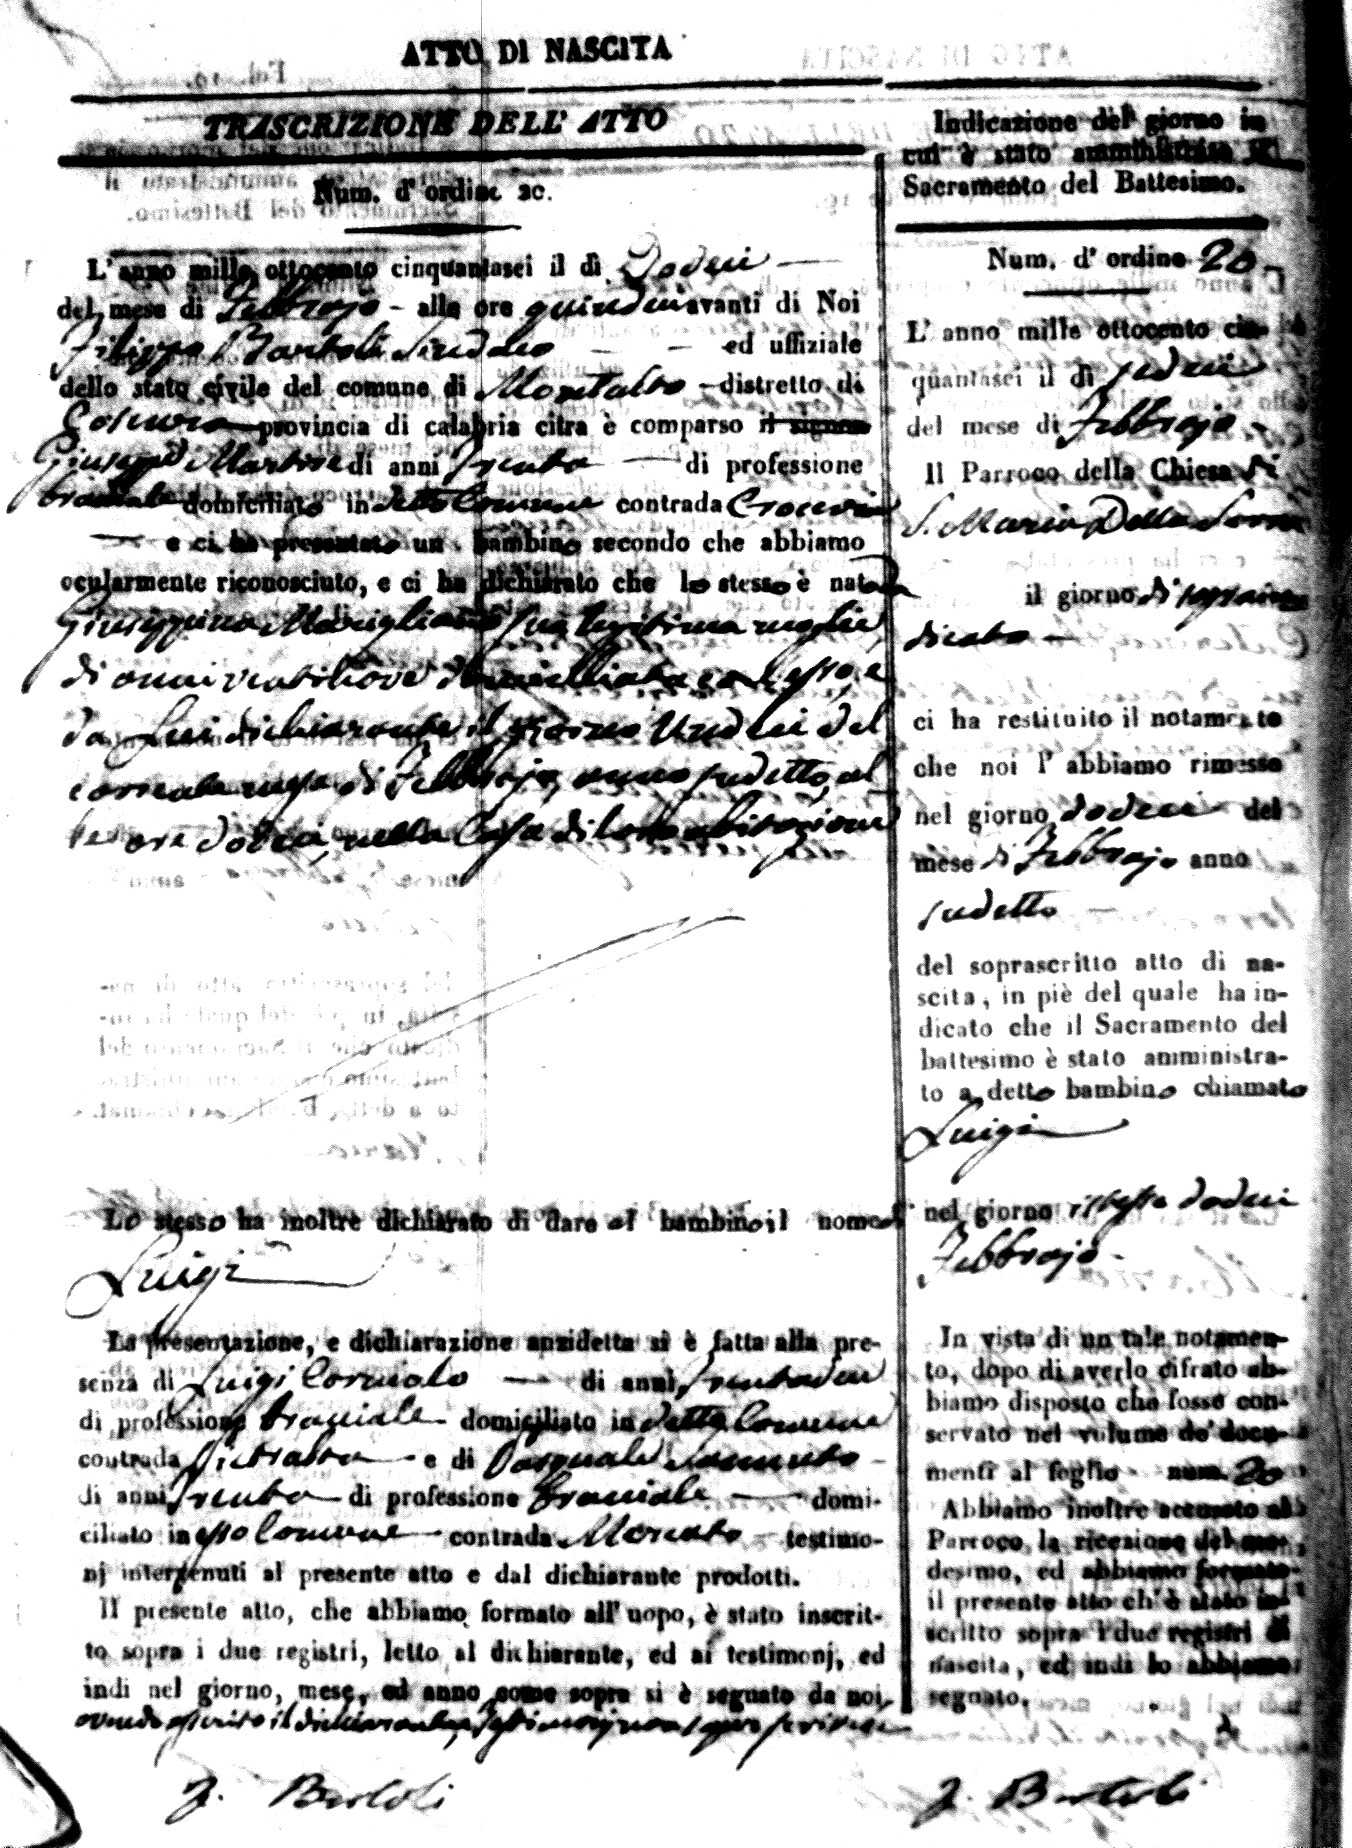 ATTO DI NASCITA
TRASCRIZIONE DELL' ATTO
Num. d' ordine 20.
L' anno mille ottocento cinquantasei il dì Dodeci
del mese di Febbrajo alle ore quindici avanti di Noi
Filippo Bartoli Sindaco ed uffiziale
dello stato civile del comune di Montalto distretto di
Cosenza provincia di calabria citra è comparso il signor
Giuseppe di anni Trenta di professione
bracciale domiciliato in detto Comune contrada Crocevia
e ci ha presentato un bambino secondo che abbiamo
ocularmente riconosciuto, e ci ha dichiarato che lo stesso è nato da
Giuseppina sua legittima moglie
di anni ventinove domiciliata con esso, e
da Lui dichiarante il giorno Undeci del
corrente mese di Febbrajo, anno sudetto, al
le ore dodeci, nella Casa di loro abitazione
Lo stesso ha inoltre dichiarato di dare al bambino il nome di
Luigi
La presentazione, e dichiarazione anzidetta si è fatta alla pre-
senza di Luigi di anni
di professione bracciale domiciliato in detto Comune
contrada e di Pasquale
di anni Trenta di professione bracciale domi-
ciliato in esso Comune contrada Mercato testimo-
nj intervenuti al presente atto e dal dichiarante prodotti.
Il presente atto, che abbiamo formato all' uopo, è stato inscrit-
to sopra i due registri, letto al dichiarante, ed ai testimonj, ed
indi nel giorno, mese, ed anno come sopra si è segnato da noi
avendo asserito il dichiarante, e Testimonj non saper scrivere
F. Bartoli
Indicazione del giorno in
cui è stato amministrato il
Sacramento del Battesimo.
Num. d' ordine 20
L' anno mille ottocento cin-
quantasei il dì
del mese di Febbrajo
Il Parroco della Chiesa di
S. Maria Della
il giorno di sopra in
dicato
ci ha restituito il notamento
che noi l' abbiamo rimesso
nel giorno dodeci del
mese di Febbrajo anno
sudetto
del soprascritto atto di na-
scita, in piè del quale ha in-
dicato che il Sacramento del
battesimo è stato amministra-
to a detto bambino chiamato
Luigi
nel giorno istesso dodeci
Febbrajo
In vista di un tale notamen-
to, dopo di averlo cifrato ab-
biamo disposto che fosse con-
servato nel volume de' docu-
menti al foglio num. 20
Abbiamo inoltre accusato al
Parroco la ricezione del me-
desimo, ed abbiamo formato
il presente atto ch' è stato in-
scritto sopra i due registri di
nascita, ed indi lo abbiamo
segnato.
F. Bartoli